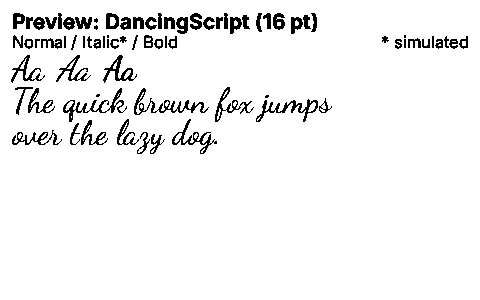 Preview: DancingScript (16 pt)
Normal / Italic* / Bold * simulated
Aa Aa Aa
The quick brown fox jumps
over the lazy dog.